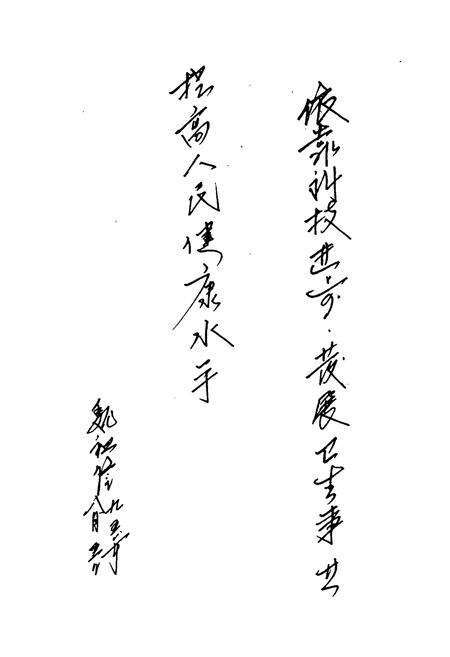 依靠科技进步·发展卫生事业
提高人民健康水平
魏祖信
九五年
八月